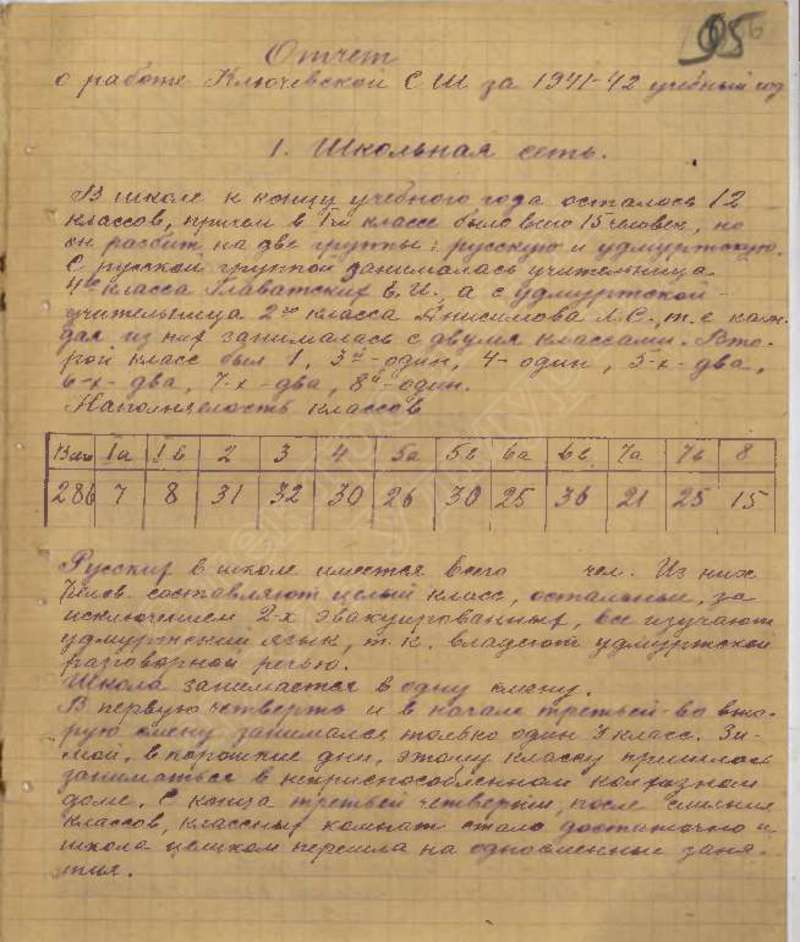 95
Отчет
о работе Ключевской СШ за 1941-42 учебный год
1. Школьная сеть.
В школе к концу учебного года осталось 12
классов, причем в 1-м классе было всего 15 человек, но
он разбит на две группы: русскую и удмуртскую.
С русской группой занималась учительница
4го класса Главатских Е.И., а с удмуртской -
учительница 2го класса Анисимова Л.С., т.е каж-
дая из них занималась с двумя классами. Вто-
рой класс был 1, 3й-один, 4-один, 5-х-два,
6-х-два, 7-х-два, 8й-один.
Наполняемость классов
Всего 1а 1б 2 3 4 5а 5б 6а 6б 7а 7б 8
286 7 8 31 32 30 26 30 25 36 21 25 15
Русских в школе имеется всего чел. Из них
составляют целый класс, остальные, за
исключением 2-х эвакуированных, все изучают
удмуртский язык, т.к. владеют удмуртской
разговорной речью.
Школа занимается в одну смену.
В первую четверть и в начале третьей-во вто-
рую смену занимался только один класс. Зи-
мой, в морозные дни, этому классу пришлось
заниматься в неприспособленном колхозном
доме. С конца третьей четверти, после слияния
классов, классных комнат стало достаточно и
школа целиком перешла на односменные заня-
тия.